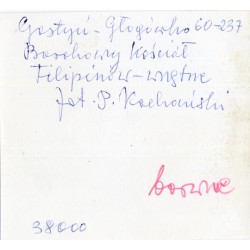 Gostyń-Głogówko 60-237
Barokowy Kościół
Filipinów-wnętrze
fot. P. Kochański
barwne
38000